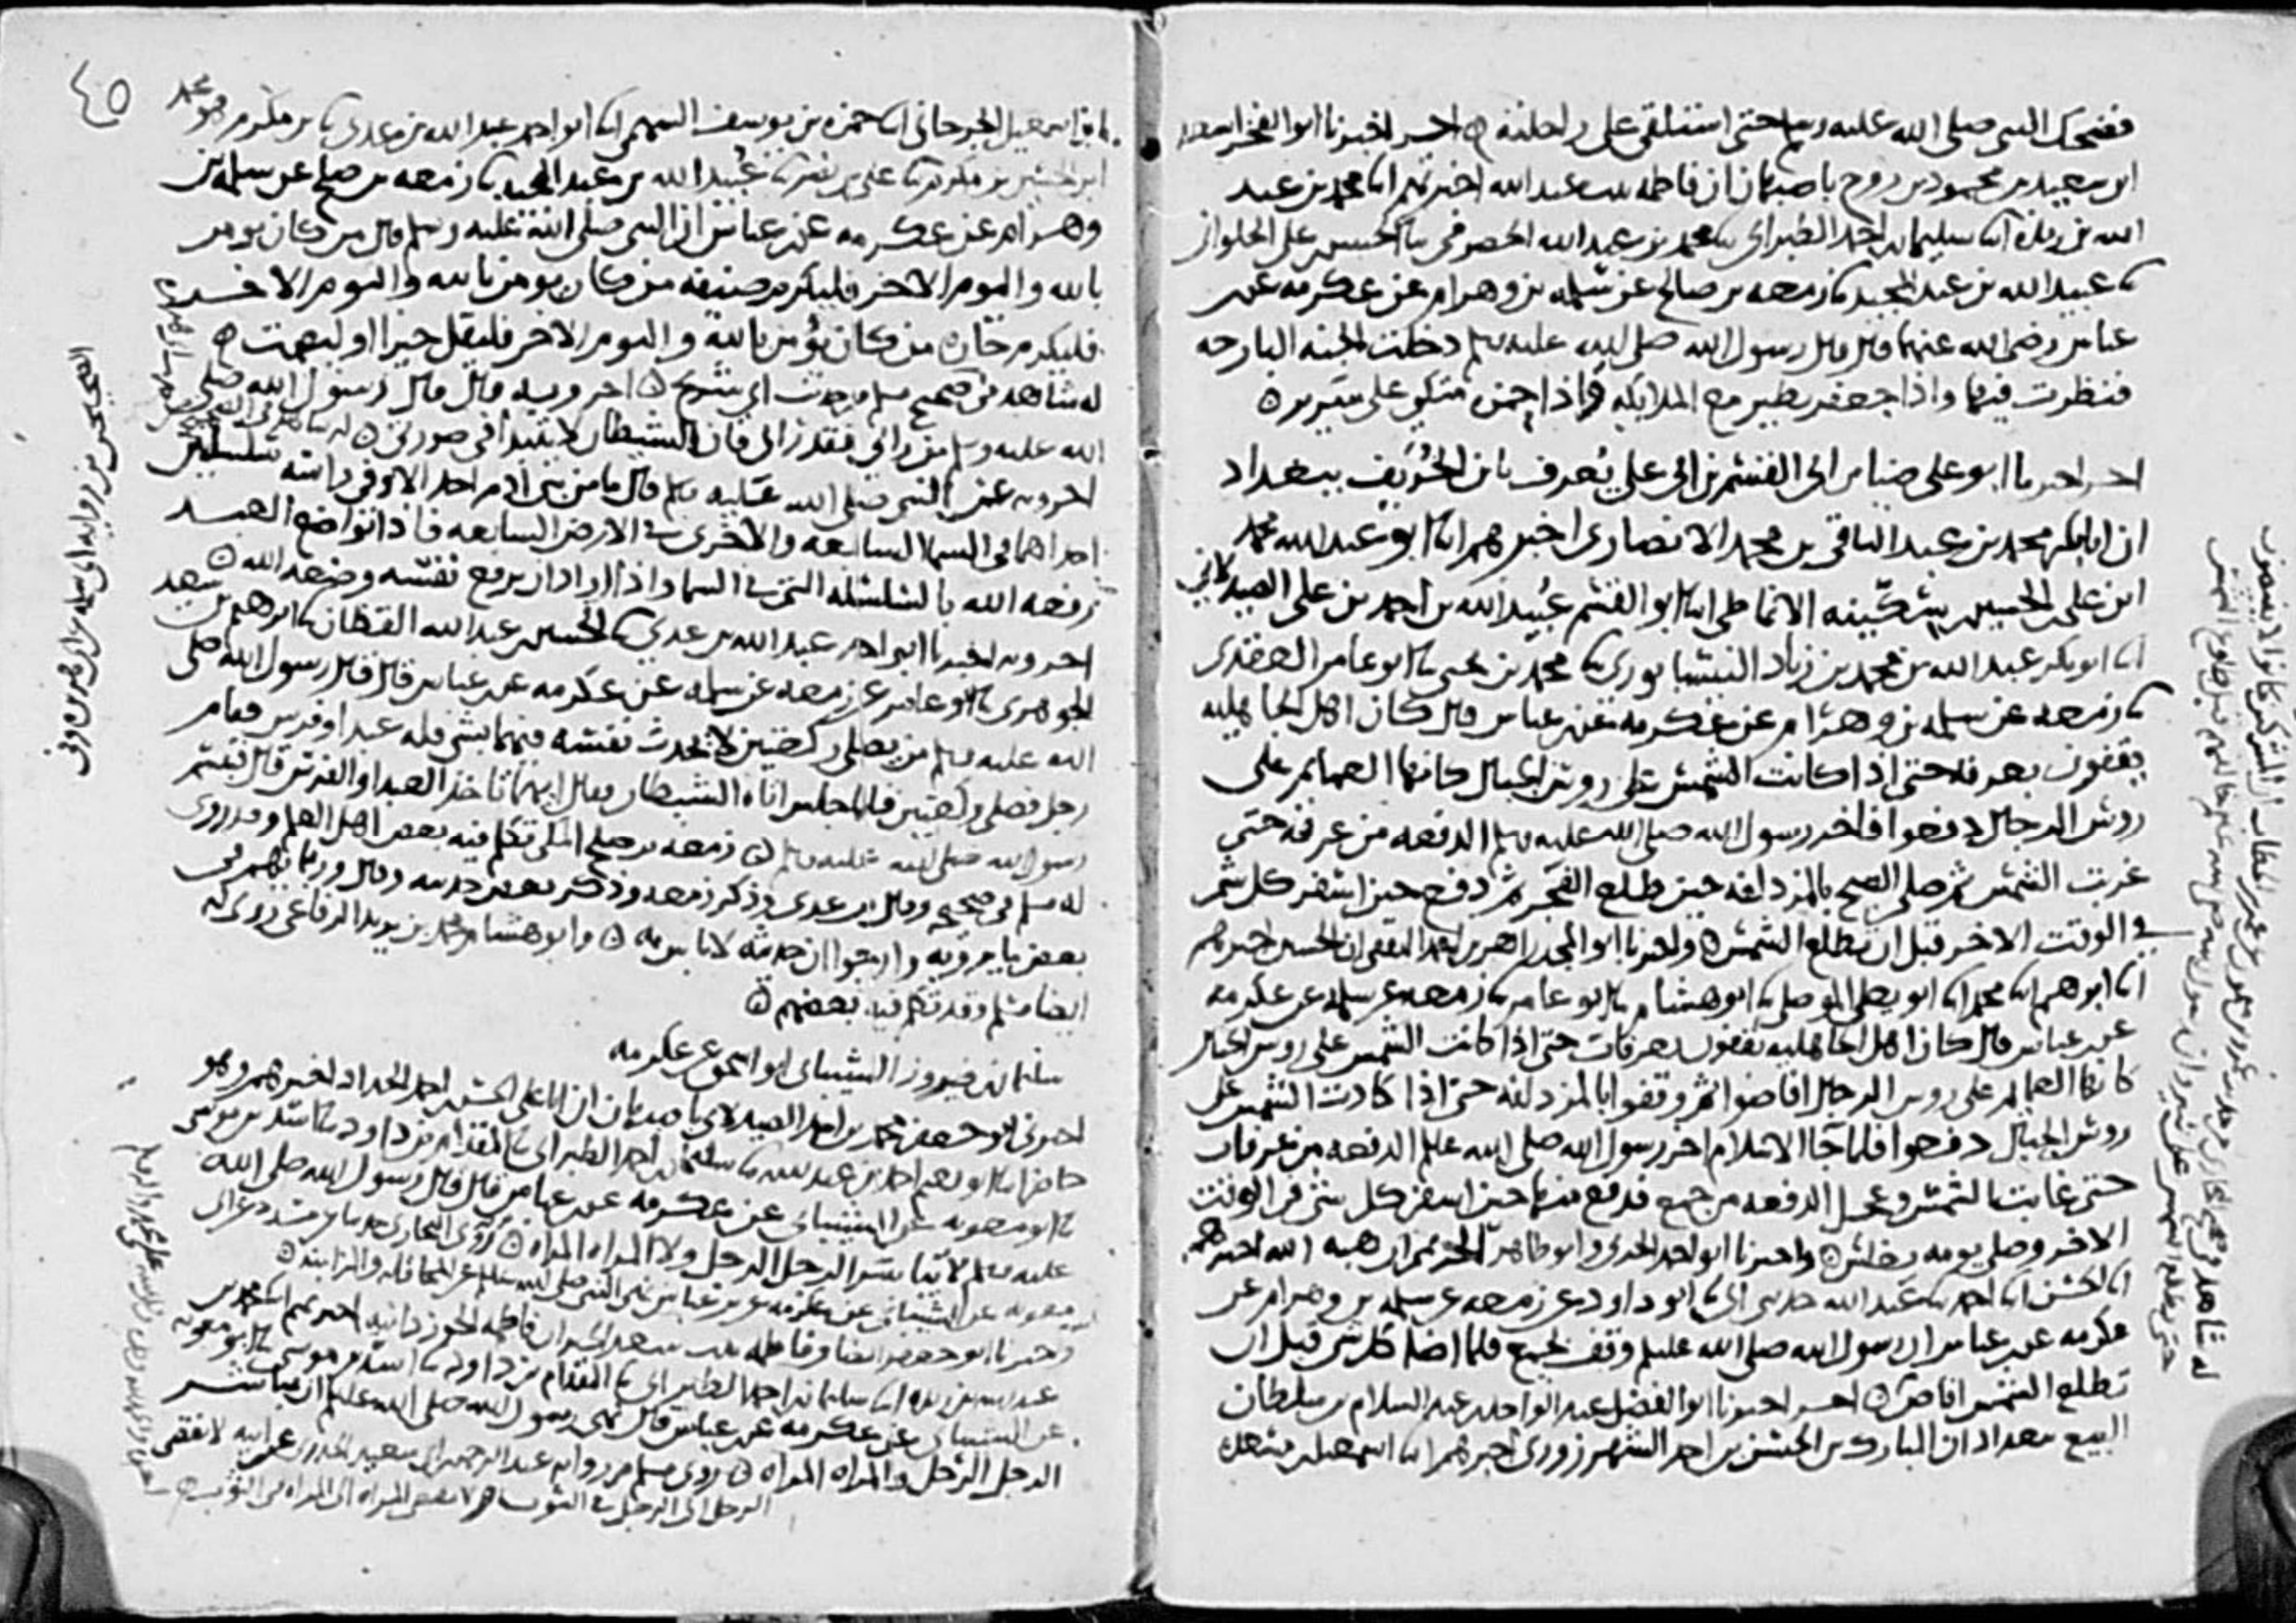 فضحك النبي صلى الله عليه وسلم حتى استلقى على راحلته ه احر اخبرنا ابو الفخر اسعد
ابن سعيد بن محمود بن روح باصبهان ان فاطمه بنت عبد الله اخبرتهم ابنا محمد بن عبد
الله بن ريذه ابنا سليمان بن احمد الطبراني ثنا محمد بن عبد الله الحضرمي ثنا الحسن بن علي الحلواني
ثنا عبيد الله بن عبد المجيد ثنا زمعه بن صالح عن سلمه بن وهرام عن عكرمه عن ابن
عباس رضي الله عنهما قال قال رسول الله صلى الله عليه وسلم دخلت الجنه البارحه
فنظرت فيها واذا جعفر يطير مع الملائكه واذا حمزه متكئ على سرير ه
احر اخبرنا ابو علي ضيا بن ابي القسم بن ابي علي يعرف بابن الخريف ببغداد
ان ابا بكر محمد بن عبد الباقي بن محمد الانصاري اخبرهم ابنا ابو عبد الله محمد
ابن علي الحسين بن سكينه الانماطي ابنا ابو القسم عبيد الله بن احمد بن علي الصيدلاني
ابنا ابو بكر عبد الله بن محمد بن زياد النيسابوري ثنا محمد بن يحيى ثنا ابو عامر العقدي
ثنا زمعه عن سلمه بن وهرام عن عكرمه عن ابن عباس قال كان اهل الجاهليه
يقفون بعرفه حتى اذا كانت الشمس على روس الجبال كانها العمايم على
روس الرجال دفعوا فاخر رسول الله صلى الله عليه وسلم الدفعه من عرفه حتى
غربت الشمس ثم صلى الصبح بالمزدلفه حين طلع الفجر ثم دفع حين اسفر كل شي
في الوقت الاخر قبل ان تطلع الشمس ه واخبرنا ابو المجد زاهر بن احمد الثقفي ان الحسين اخبرهم
ابنا ابرهيم ابنا محمد ابنا ابو يعلى الموصلي ثنا ابو هشام ثنا ابو عامر ثنا زمعه عن سلمه عن عكرمه
عن ابن عباس قال كان اهل الجاهليه يقفون بعرفات حتى اذا كانت الشمس على روس الجبال
كانها العمايم على روس الرجال افاضوا ثم وقفوا بالمزدلفه حتى اذا كادت الشمس على
روس الجبال دفعوا فلما جا الاسلام اخر رسول الله صلى الله عليه الدفعه من عرفات
حتى غابت الشمس وعجل الدفعه من جمع فدفع منها حين اسفر كل شي في الوقت
الاخر وصلى يومه بغلس ه واخبرنا ابو احمد الحربي وابو طاهر الحريمي ان هبه الله اخبرهم
ابنا الحسن ابنا احمد ثنا عبد الله حدثني ابي ثنا ابو داود عن زمعه عن سلمه بن وهرام عن
عكرمه عن ابن عباس ان رسول الله صلى الله عليه وقف بجمع فلما اضا كل شي قبل ان
تطلع الشمس افاض ه احر اخبرنا ابو الفضل عبد الواحد بن عبد السلام بن سلطان
البيع ببغداد ان المبارك بن الحسن بن احمد الشهرزوري اخبرهم ابنا اسمعيل بن مسعده
٤٥
ابن اسمعيل الجرجاني ابنا حمزه بن يوسف السهمي ابنا ابو احمد عبد الله بن عدي ثنا ابن مكرم هو محمد
ابن الحسين بن مكرم ثنا علي بن نصر ثنا عبيد الله بن عبد المجيد ثنا زمعه بن صالح عن سلمه بن
وهرام عن عكرمه عن ابن عباس ان النبي صلى الله عليه وسلم قال من كان يومن
بالله واليوم الاخر فليكرم ضيفه من كان يومن بالله واليوم الاخر
فليكرم جاره من كان يؤمن بالله واليوم الاخر فليقل خيرا او ليصمت ه
له شاهد في صحيح مسلم من حديث ابي شريح ه احر وبه قال قال رسول الله صلى
الله عليه وسلم من راني فقد راني فان الشيطان لا يتبدا في صورتي ه
احر وبه عن النبي صلى الله عليه وسلم قال ما من بني ادم احد الا وفي راسه سلسلتين
احداهما في السما السابعه والاخرى في الارض السابعه فاذا تواضع العبد
رفعه الله بالسلسله التي في السما واذا اراد ان يرفع نفسه وضعه الله ه
احر وبه اخبرنا ابو احمد عبد الله بن عدي ثنا الحسين بن عبد الله القطان ثنا ابرهيم بن سعيد
الجوهري ثنا ابو عامر عن زمعه عن سلمه عن عكرمه عن ابن عباس قال قال رسول الله صلى
الله عليه وسلم من يصلي ركعتين لا يحدث نفسه فيهما بشي فله عبد او فرس فقام
رجل فصلى ركعتين فلما جلس اتاه الشيطان فقال ايهما تاخذ العبد او الفرس قال فتبسم
رسول الله صلى الله عليه وسلم ه زمعه بن صالح المكي تكلم فيه بعض اهل العلم وقد روى
له مسلم في صحيحه وقال ابن عدي وذكر زمعه وذكر بعض حديثه وقال وربما يهم في
بعض ما يرويه وارجوا ان حديثه لا باس به ه وابو هشام محمد بن يزيد الرفاعي روى له
ايضا مسلم وقد تكلم فيه بعضهم ه
سليمان بن فيروز الشيباني ابو اسحق عن عكرمه
اخبرني ابو جعفر محمد بن احمد الصيدلاني باصبهان ان ابا علي الحسن بن احمد الحداد اخبرهم وهو
حاضر ابنا ابو نعيم احمد بن عبد الله ثنا سليمان بن احمد الطبراني ثنا المقدام بن داود ثنا اسد بن موسى
ثنا ابو معويه عن الشيباني عن عكرمه عن ابن عباس قال قال رسول الله صلى الله
عليه وسلم لا يباشر الرجل الرجل ولا المراه المراه ه روى البخاري حديثا عن مسدد عن ابي
معويه عن الشيباني عن عكرمه عن ابن عباس نهى النبي صلى الله عليه وسلم عن المحاقله والمزابنه ه
واخبرنا ابو جعفر ايضا وفاطمه بنت سعد الخير ان فاطمه الجوزدانيه اخبرتهم ابنا محمد بن
عبد الله بن ريذه ابنا سليمان بن احمد الطبراني ثنا المقدام بن داود ثنا اسد بن موسى ثنا ابو معويه
عن الشيباني عن عكرمه عن ابن عباس قال نهى رسول الله صلى الله عليه ان يباشر
الرجل الرجل والمراه المراه ه روى مسلم من روايه عبد الرحمن بن ابي سعيد الخدري عن ابيه لا يفضي
الرجل الى الرجل في الثوب ولا تفضي المراه الى المراه في الثوب ه